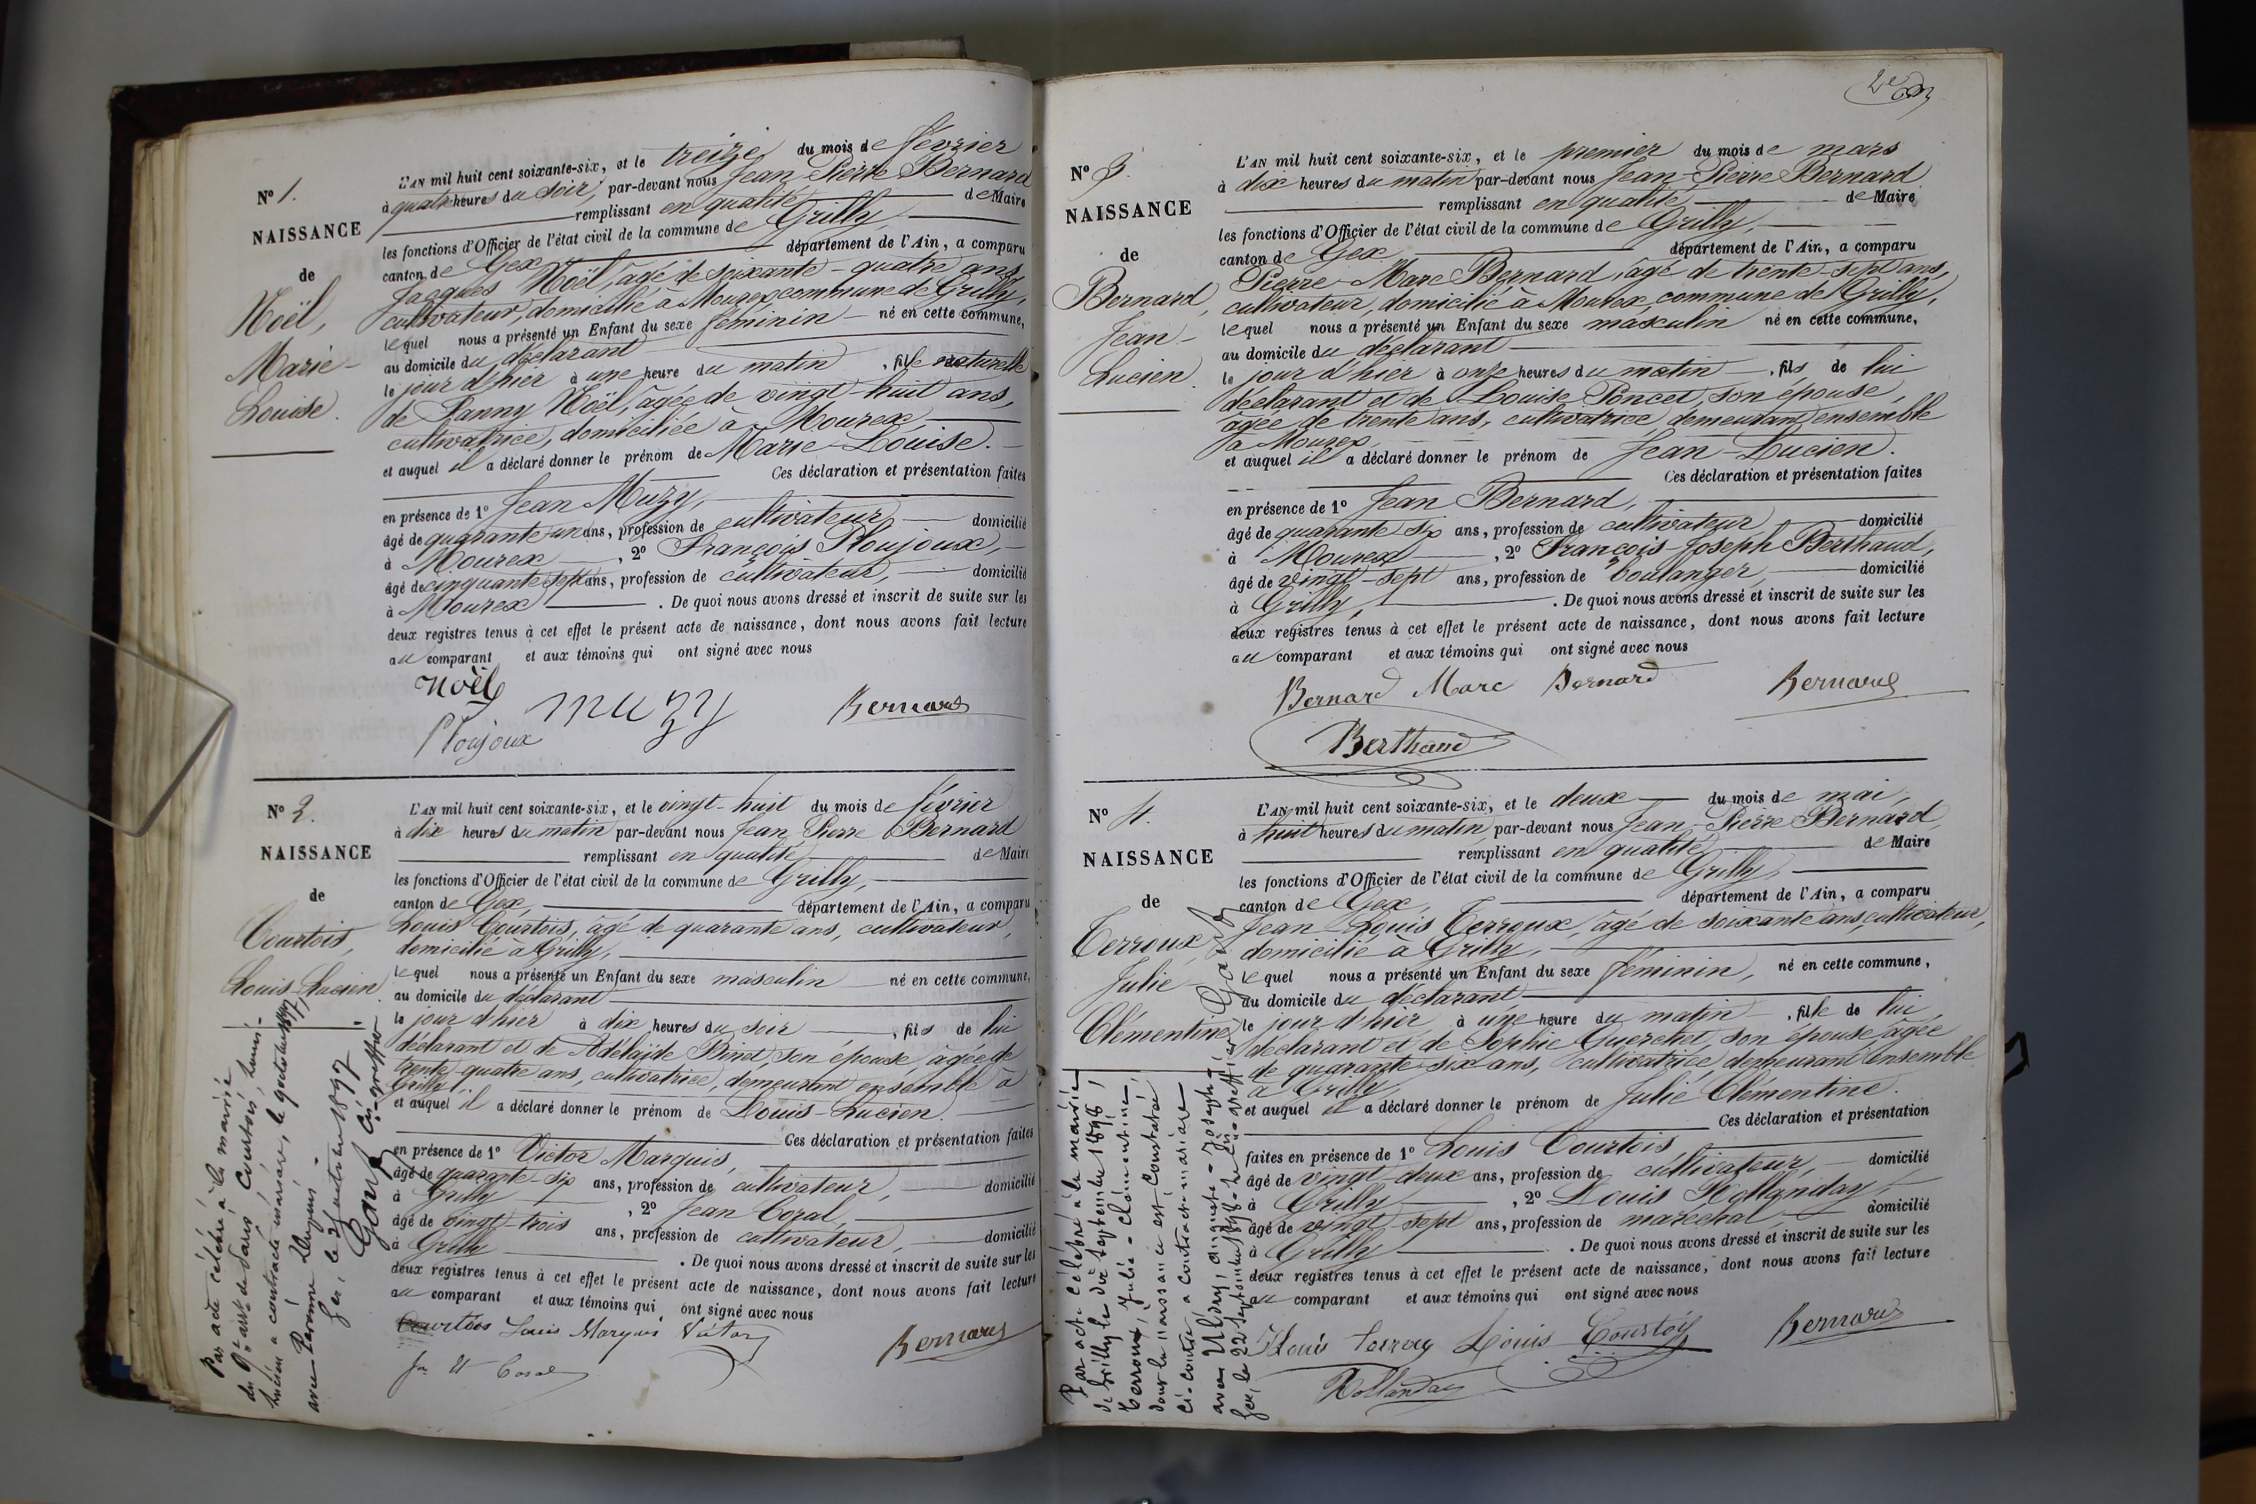 N° 1.
NAISSANCE
de
Noël,
Marie-
Louise.
L'AN mil huit cent soixante-six, et le treize du mois de février
à quatre heures du soir, par-devant nous Jean-Pierre Bernard
remplissant en qualité de Maire
les fonctions d'Officier de l'état civil de la commune de Grilly,
canton de Gex département de l'Ain, a comparu
Jacques Noël, âgé de soixante-quatre ans,
cultivateur, domicilié à Mourex commune de Grilly,
lequel nous a présenté un Enfant du sexe féminin né en cette commune,
au domicile du déclarant
le jour d'hier à une heure du matin, fille naturelle
de Fanny Noël, âgée de vingt-huit ans,
cultivatrice, domiciliée à Mourex,
et auquel il a déclaré donner le prénom de Marie-Louise.
Ces déclaration et présentation faites
en présence de 1° Jean Muzy,
âgé de quarante-un ans, profession de cultivateur domicilié
à Mourex, 2° François Ploujoux,
âgé de cinquante-sept ans, profession de cultivateur, domicilié
à Mourex. De quoi nous avons dressé et inscrit de suite sur les
deux registres tenus à cet effet le présent acte de naissance, dont nous avons fait lecture
au comparant et aux témoins qui ont signé avec nous
Noël
muzy Bernard
Ploujoux
N° 2.
NAISSANCE
de
Courtois,
Louis-Lucien.
L'AN mil huit cent soixante-six, et le vingt-huit du mois de février
à dix heures du matin par-devant nous Jean-Pierre Bernard
remplissant en qualité de Maire
les fonctions d'Officier de l'état civil de la commune de Grilly,
canton de Gex, département de l'Ain, a comparu
Louis Courtois, âgé de quarante ans, cultivateur,
domicilié à Grilly,
lequel nous a présenté un Enfant du sexe masculin né en cette commune,
au domicile du déclarant
le jour d'hier à dix heures du soir, fils de lui
déclarant et de Adélaïde Binet, son épouse, âgée de
trente-quatre ans, cultivatrice, demeurant ensemble à
Grilly.
et auquel il a déclaré donner le prénom de Louis-Lucien.
Ces déclaration et présentation faites
en présence de 1° Victor Marquis,
âgé de quarante-six ans, profession de cultivateur, domicilié
à Grilly, 2° Jean Coral,
âgé de vingt-trois ans, profession de cultivateur, domicilié
à Grilly. De quoi nous avons dressé et inscrit de suite sur les
deux registres tenus à cet effet le présent acte de naissance, dont nous avons fait lecture
au comparant et aux témoins qui ont signé avec nous
Courtois Louis Marquis Victor Bernard
Coral
Par acte célébré à la mairie
du 9e arrt de Paris Courtois, Louis-
Lucien a contracté mariage, le 9 octobre 1897,
avec
Gex, le 21 octobre 1897
Le Cis-greffier
N° 3.
NAISSANCE
de
Bernard,
Jean-
Lucien.
L'AN mil huit cent soixante-six, et le premier du mois de mars
à dix heures du matin par-devant nous Jean-Pierre Bernard
remplissant en qualité de Maire
les fonctions d'Officier de l'état civil de la commune de Grilly,
canton de Gex département de l'Ain, a comparu
Pierre-Marc Bernard, âgé de trente-sept ans,
cultivateur, domicilié à Mourex, commune de Grilly,
lequel nous a présenté un Enfant du sexe masculin né en cette commune,
au domicile du déclarant
le jour d'hier à onze heures du matin, fils de lui
déclarant et de Louise Poncet, son épouse,
âgée de trente ans, cultivatrice, demeurant ensemble
à Mourex
et auquel il a déclaré donner le prénom de Jean-Lucien.
Ces déclaration et présentation faites
en présence de 1° Jean Bernard,
âgé de quarante six ans, profession de cultivateur domicilié
à Mourex, 2° François-Joseph Berthaud,
âgé de vingt-sept ans, profession de boulanger, domicilié
à Grilly,. De quoi nous avons dressé et inscrit de suite sur les
deux registres tenus à cet effet le présent acte de naissance, dont nous avons fait lecture
au comparant et aux témoins qui ont signé avec nous
Bernard Marc Bernard Bernard
Berthaud
N° 4.
NAISSANCE
de
Terroux,
Julie-
Clémentine
L'AN mil huit cent soixante-six, et le deux du mois de mai,
à huit heures du matin, par-devant nous Jean-Pierre Bernard,
remplissant en qualité de Maire
les fonctions d'Officier de l'état civil de la commune de Grilly,
canton de Gex, département de l'Ain, a comparu
Jean Louis Terroux, âgé de soixante ans, cultivateur,
domicilié à Grilly,
lequel nous a présenté un Enfant du sexe féminin, né en cette commune,
au domicile du déclarant
le jour d'hier à une heure du matin, fille de lui
déclarant et de Sophie Guerchet, son épouse, âgée
de quarante-six ans, cultivatrice, demeurant ensemble
à Grilly,
et auquel il a déclaré donner le prénom de Julie Clémentine.
Ces déclaration et présentation
faites en présence de 1° Louis Courtois
âgé de vingt-deux ans, profession de cultivateur, domicilié
à Grilly, 2° Louis Rollanday,
âgé de vingt-sept ans, profession de maréchal, domicilié
à Grilly. De quoi nous avons dressé et inscrit de suite sur les
deux registres tenus à cet effet le présent acte de naissance, dont nous avons fait lecture
au comparant et aux témoins qui ont signé avec nous
Louis Courtois Bernard
Rollanday
Par acte célébré à la mairie
de Grilly le dix septembre 1898,
Terroux, Julie-Clémentine
dont la naissance est constatée
ci-contre a contracté mariage
avec Uldry, auguste-Joseph.
Gex, le 22 septembre 1898. Le Cis-greffier